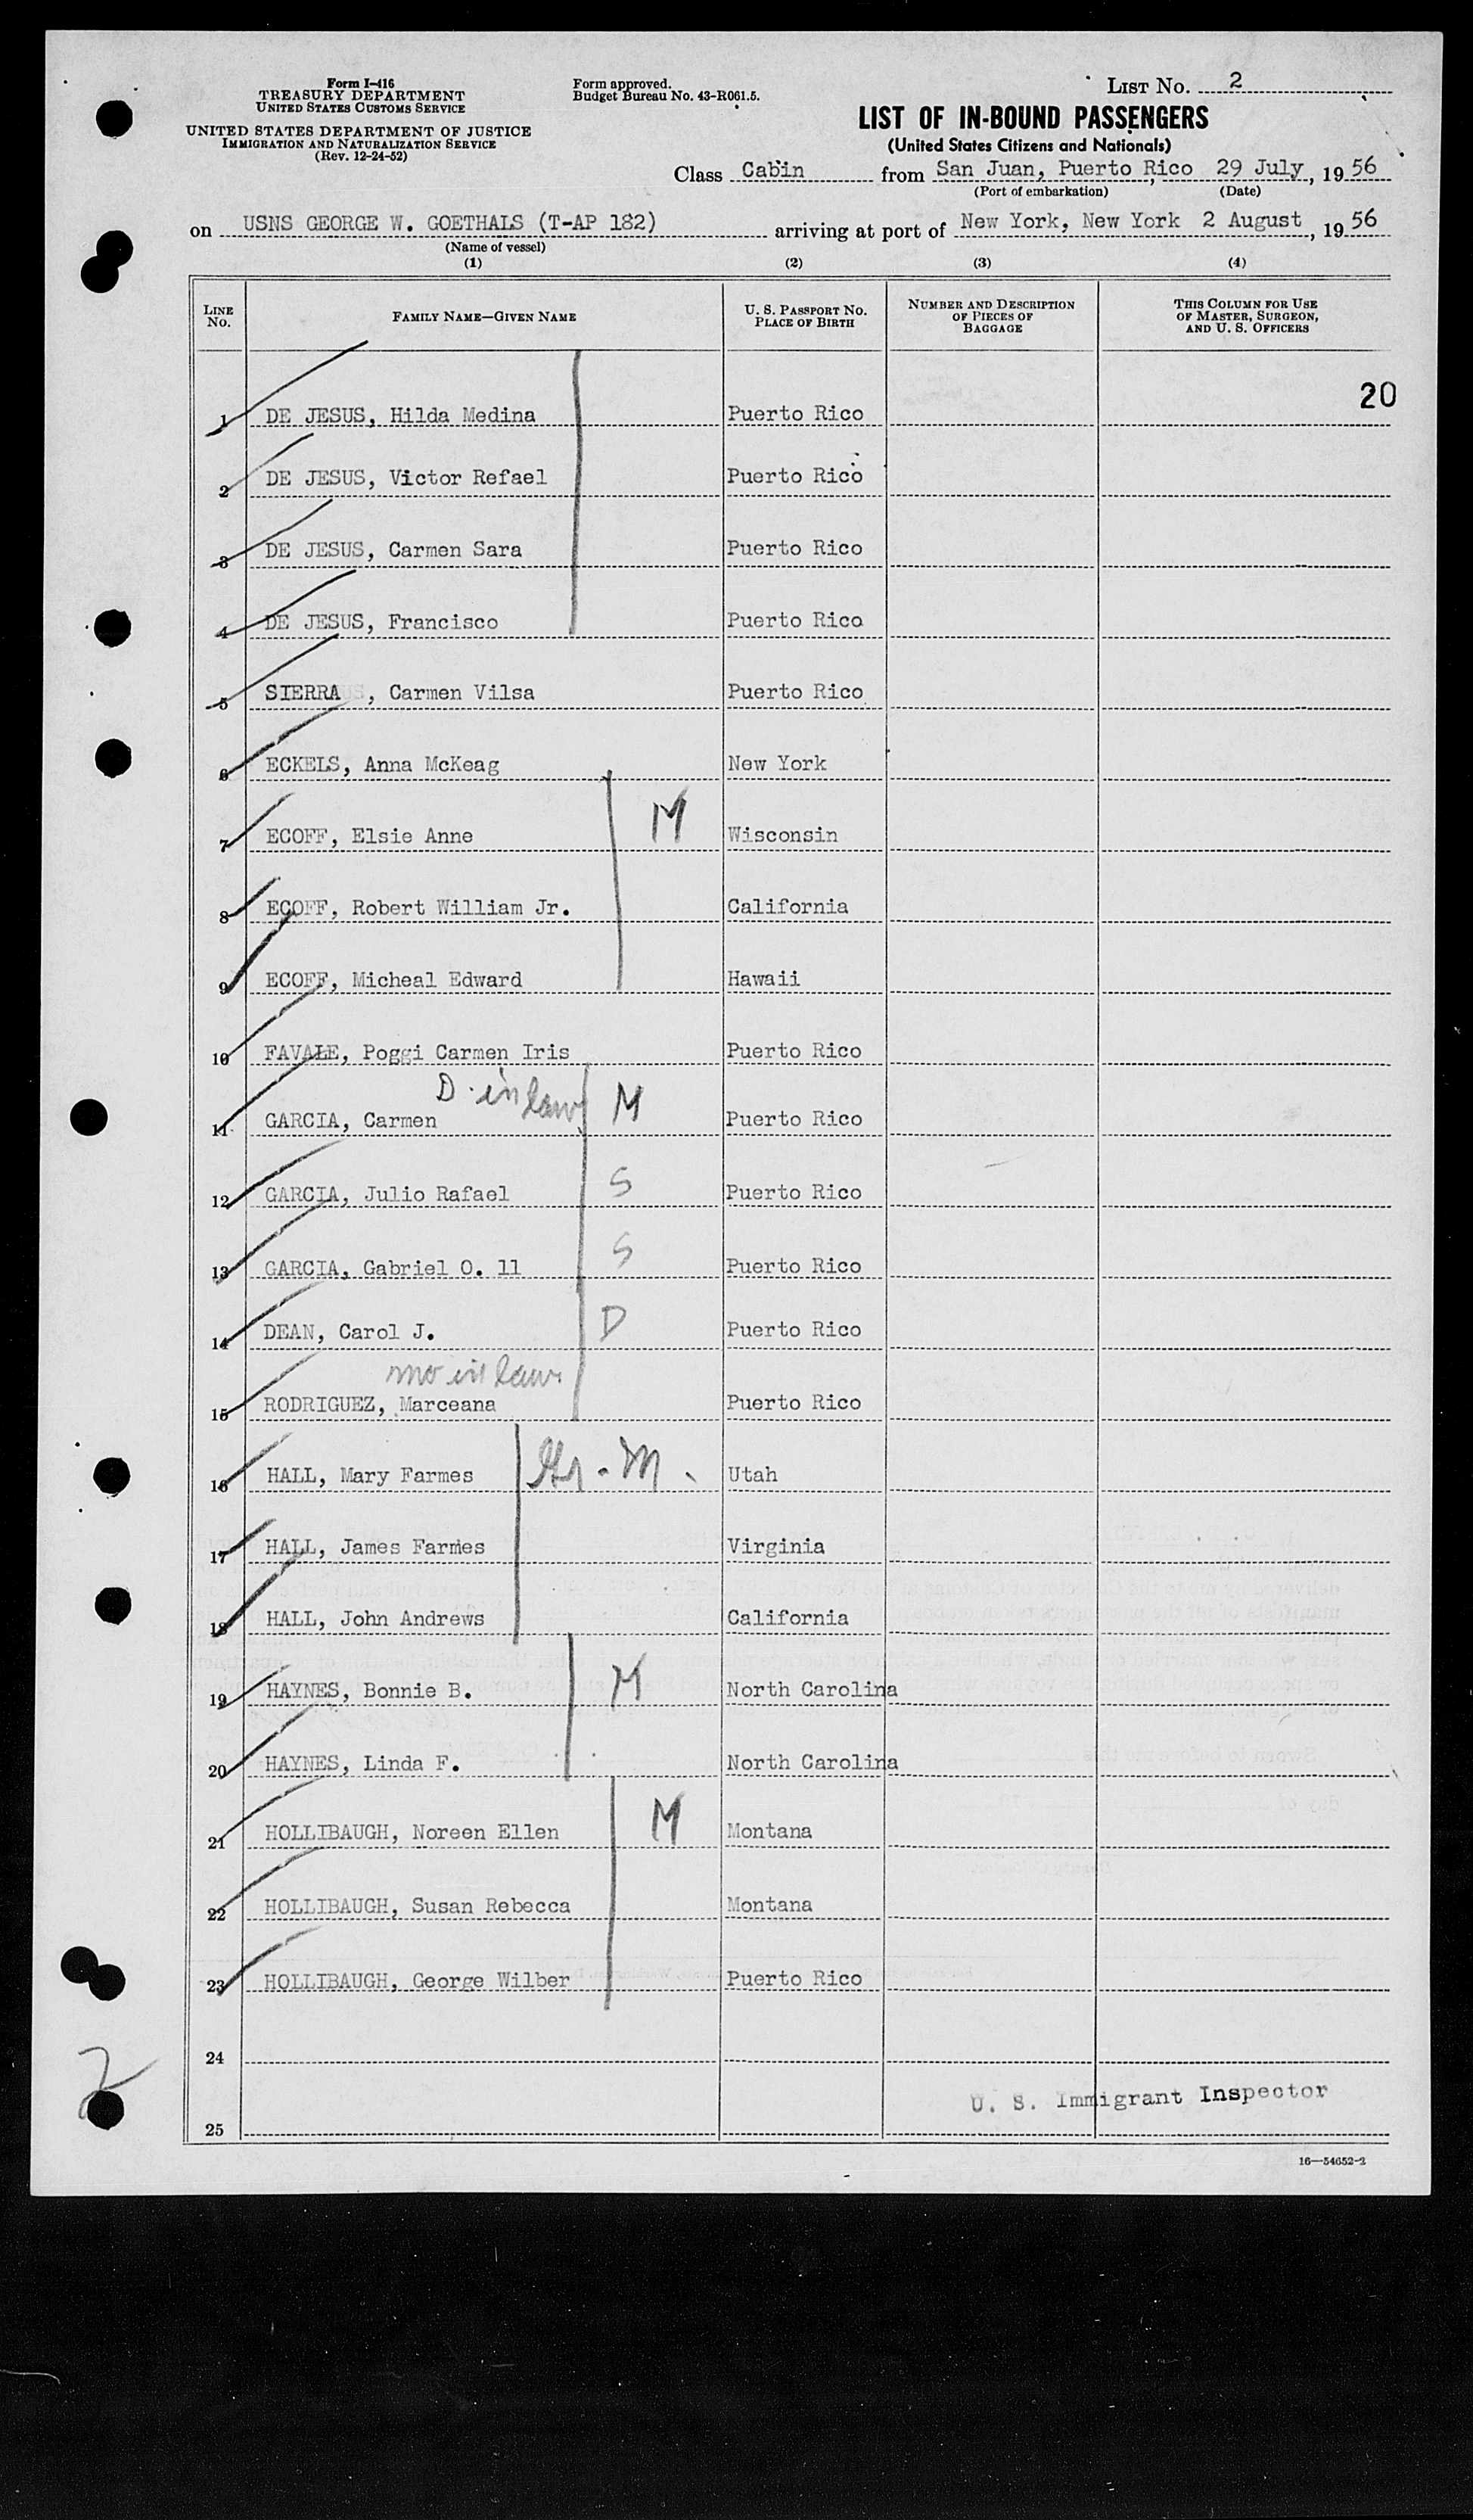 Form I-416
TREASURY DEPARTMENT
UNITED STATES CUSTOMS SERVICE
UNITED STATES DEPARTMENT OF JUSTICE
IMMIGRATION AND NATURALIZATION SERVICE
(Rev. 12-24-52)
Form approved.
Budget Bureau No. 43-R061.5.
LIST No. 2
LIST OF IN-BOUND PASSENGERS
(United States Citizens and Nationals)
Class Cabin from San Juan, Puerto Rico, 29 July, 19 56
(Port of embarkation) (Date)
on USNS GEORGE W. GOETHALS (T-AP 182) arriving at port of New York, New York 2 August, 19 56
(Name of vessel)
(1) (2) (3) (4)
LINE No. FAMILY NAME—GIVEN NAME U. S. PASSPORT NO. PLACE OF BIRTH NUMBER AND DESCRIPTION OF PIECES OF BAGGAGE THIS COLUMN FOR USE OF MASTER, SURGEON, AND U. S. OFFICERS
20
1 DE JESUS, Hilda Medina Puerto Rico
2 DE JESUS, Victor Refael Puerto Rico
3 DE JESUS, Carmen Sara Puerto Rico
4 DE JESUS, Francisco Puerto Rico
5 SIERRA, Carmen Vilsa Puerto Rico
6 ECKELS, Anna McKeag New York
7 ECOFF, Elsie Anne M Wisconsin
8 ECOFF, Robert William Jr. California
9 ECOFF, Micheal Edward Hawaii
10 FAVALE, Poggi Carmen Iris Puerto Rico
D. in law
11 GARCIA, Carmen M Puerto Rico
12 GARCIA, Julio Rafael S Puerto Rico
13 GARCIA, Gabriel O. 11 S Puerto Rico
14 DEAN, Carol J. D Puerto Rico
mo in law
15 RODRIGUEZ, Marceana Puerto Rico
16 HALL, Mary Farmes Gr. M. Utah
17 HALL, James Farmes Virginia
18 HALL, John Andrews California
19 HAYNES, Bonnie B. M North Carolina
20 HAYNES, Linda F. North Carolina
21 HOLLIBAUGH, Noreen Ellen M Montana
22 HOLLIBAUGH, Susan Rebecca Montana
23 HOLLIBAUGH, George Wilber Puerto Rico
24
2
U. S. Immigrant Inspector
25
16—54652-2